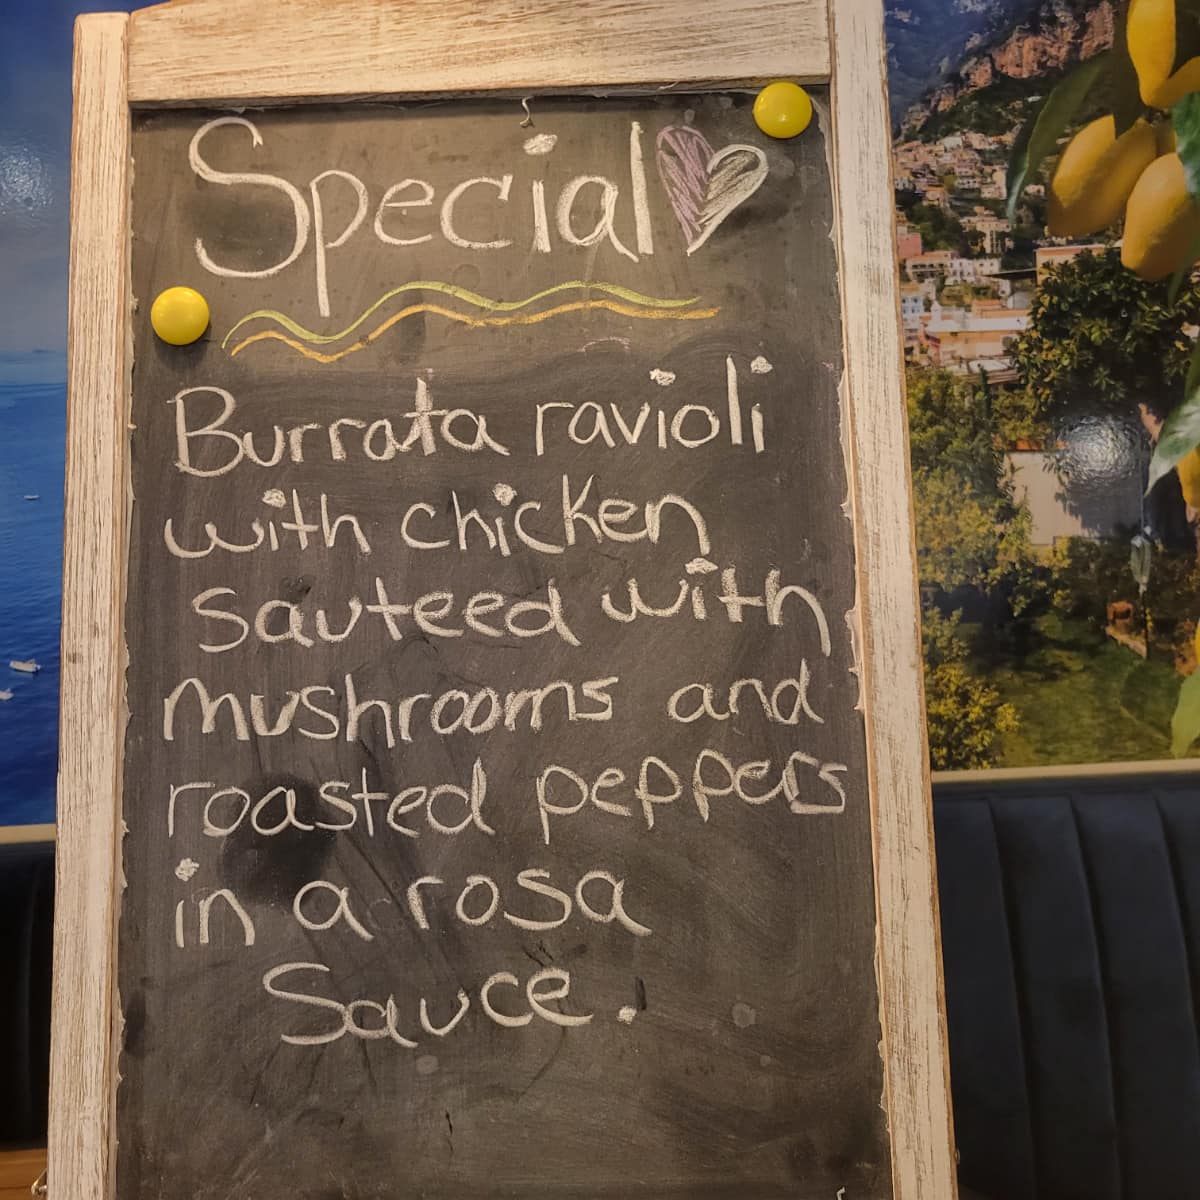 Special
Burrata ravioli
with chicken
Sauteed with
mushrooms and
roasted peppers
in a rosa
Sauce.